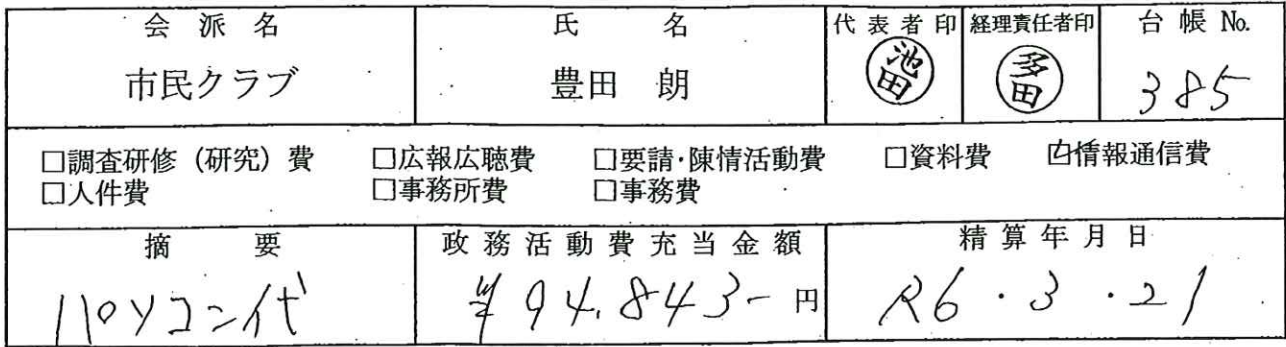 会派名 氏名 代表者印 経理責任者印 台帳 No.
市民クラブ 豊田 朗 池田 多田 385
□調査研修（研究）費 □広報広聴費 □要請・陳情活動費 □資料費 ☑情報通信費
□人件費 □事務所費 □事務費
摘要 政務活動費充当金額 精算年月日
パソコン代 ¥94,843- 円 R6・3・21